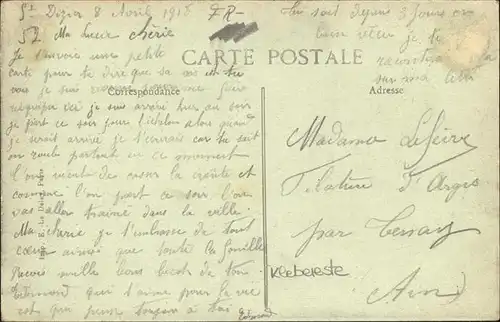 St Dizier 8 Avril 1918 FR-
57 Ma Lucie chérie
je t'envoie une petite
carte pour te dire que sa va et tu
vois je suis
je suis arrivé hier au soir
je part ce soir pour quand
je serait arrivé je t'écrirait car tu sait
on roule partout en ce moment
l'on vient de casser la croûte et
comme l'on part ce soir l'on
vas aller trainé dans la ville.
Ma chérie je t'embrasse de tout
cœur ainsi que toute la famille
reçois mille bons becots de ton
Edmond qui t'aime pour la vie
et qui pense toujours à toi Edmond
Tu sait depuis 3 jours on
bien je te
raconterai
sur ma
CARTE POSTALE
Correspondance
Adresse
Madame Lefèvre
Filature d'Arges
par Tenay
Ain
Klebereste